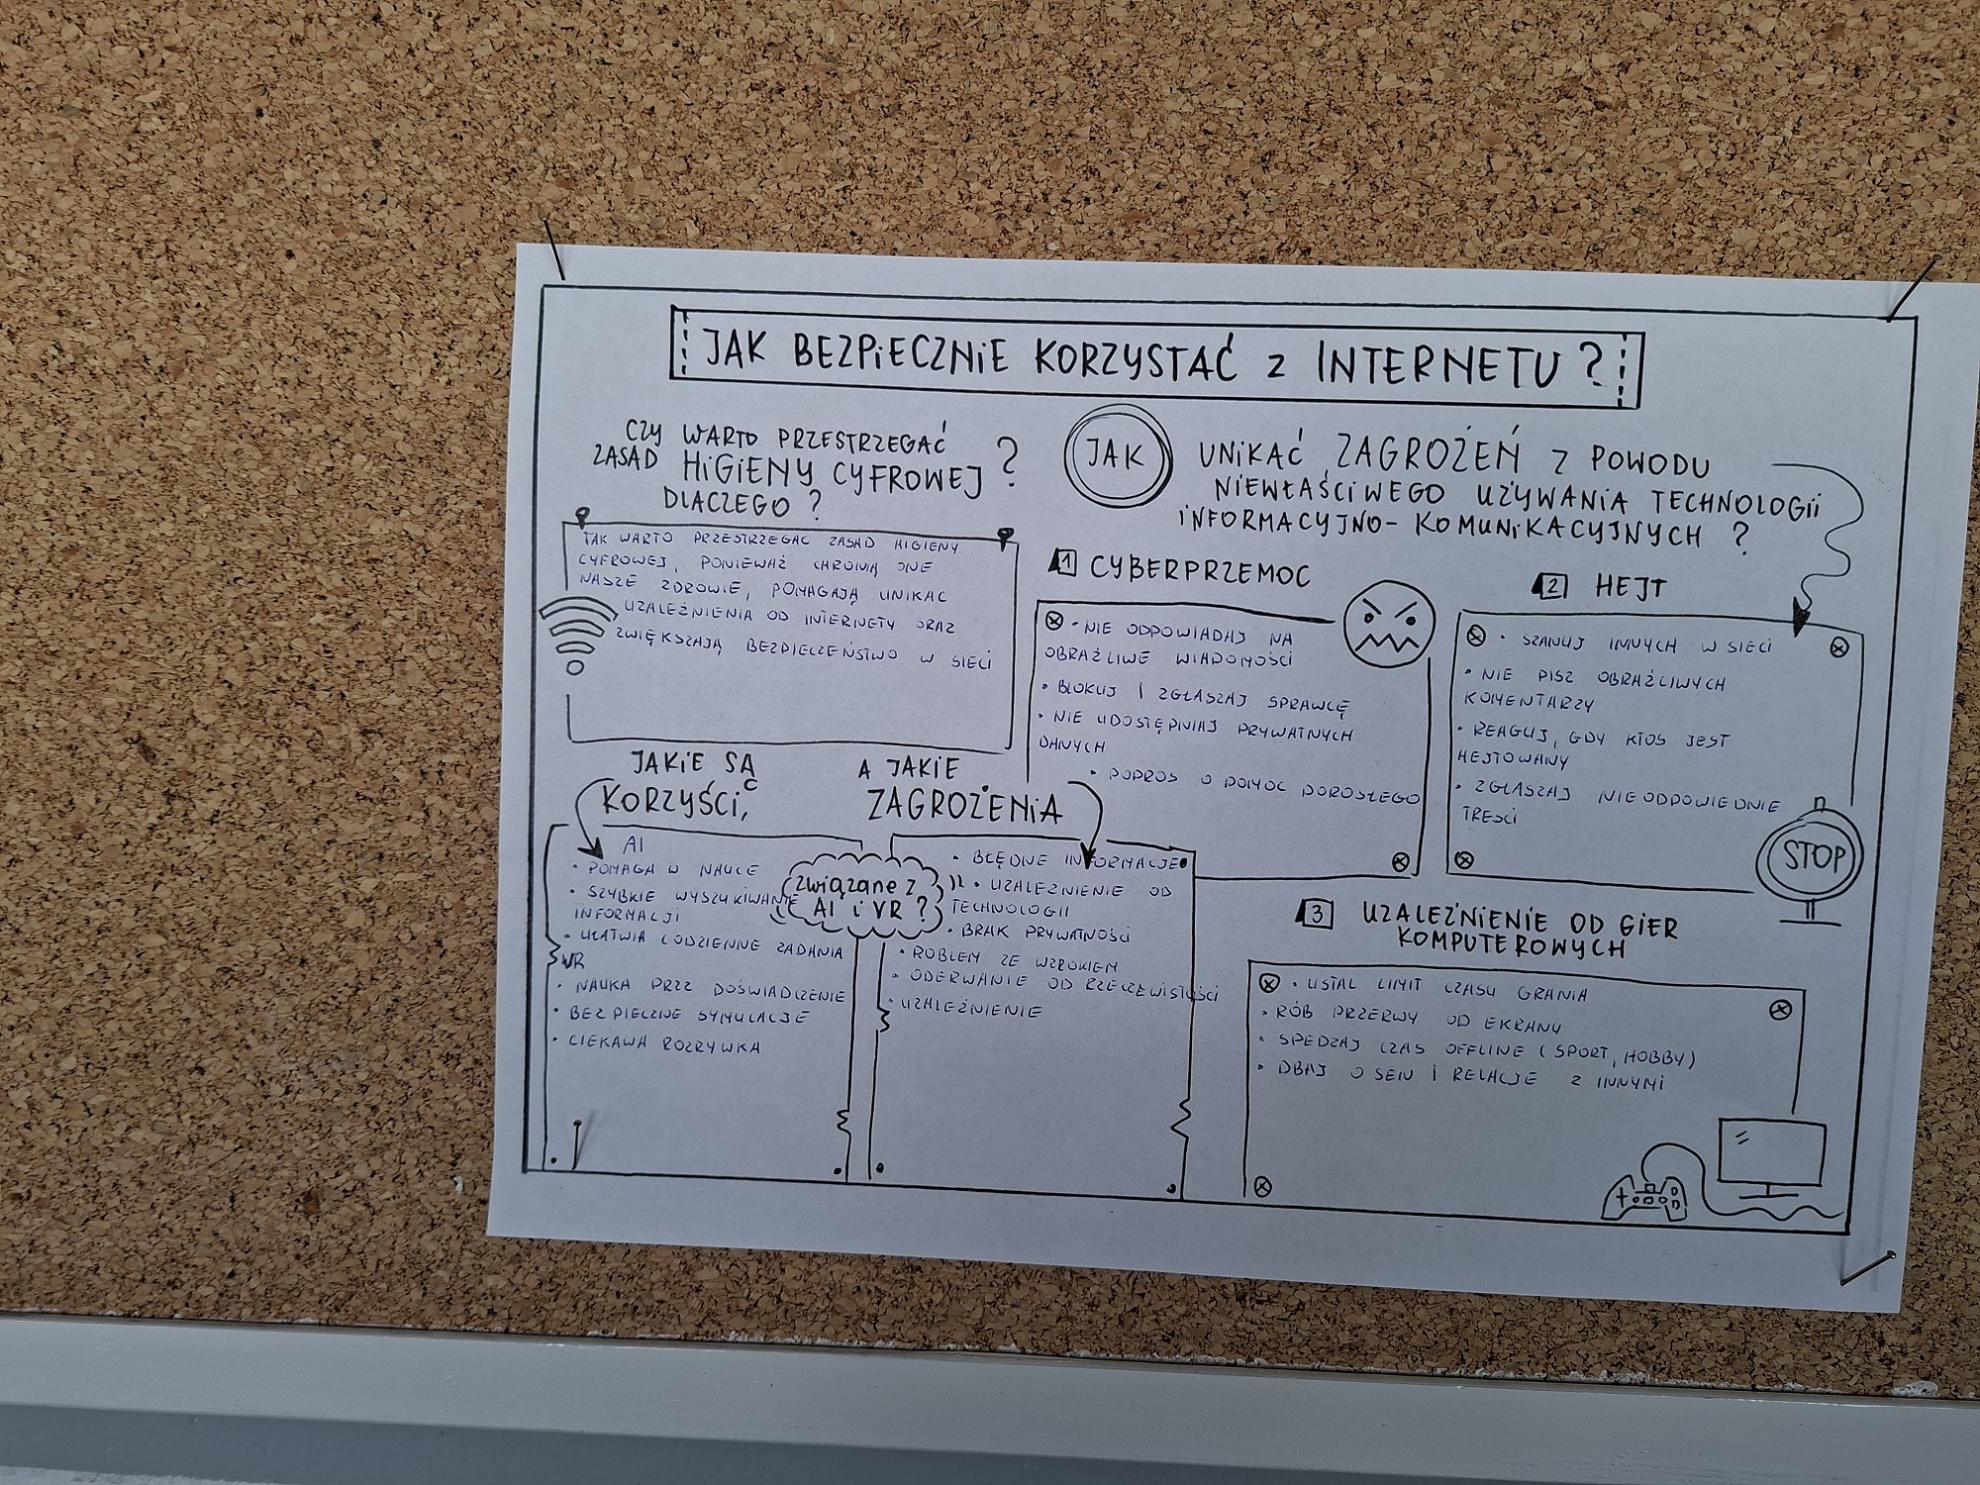 JAK BEZPIECZNIE KORZYSTAĆ z INTERNETU ?
CZY WARTO PRZESTRZEGAĆ
ZASAD HIGIENY CYFROWEJ ?
DLACZEGO ?
TAK WARTO PRZESTRZEGAC ZASAD HIGIENY
CYFROWEJ, PONIEWAŻ CHRONIĄ ONE
NASZE ZDROWIE, POMAGAJĄ UNIKAC
UZALEŻNIENIA OD INTERNETY ORAZ
ZWIĘKSZAJĄ BEZPIECZEŃSTWO W SIECI
JAK UNIKAĆ ZAGROŻEŃ Z POWODU
NIEWŁAŚCIWEGO UŻYWANIA TECHNOLOGII
INFORMACYJNO-KOMUNIKACYJNYCH ?
1 CYBERPRZEMOC
• NIE ODPOWIADAJ NA
OBRAŹLIWE WIADOMOŚCI
• BLOKUJ I ZGŁASZAJ SPRAWCĘ
• NIE UDOSTĘPNIAJ PRYWATNYCH
DANYCH
• POPROS O POMOC DOROSŁEGO
2 HEJT
• SZANUJ INNYCH W SIECI
• NIE PISZ OBRAŹLIWYCH
KOMENTARZY
• REAGUJ, GDY KTOS JEST
HEJTOWANY
• ZGŁASZAJ NIEODPOWIEDNIE
TRESCI
STOP
JAKIE SĄ
KORZYŚCI,
A JAKIE
ZAGROŻENIA
związane z
AI i VR ?
AI
• POMAGA W NAUCE
• SZYBKIE WYSZUKIWANIE
INFORMACJI
• UŁATWIA CODZIENNE ZADANIA
VR
• NAUKA PRZZ DOŚWIADCZENIE
• BEZPIECZNE SYMULACJE
• CIEKAWA ROZRYWKA
• BŁĘDNE INFORMACJE
• UZALEZNIENIE OD
TECHNOLOGII
• BRAK PRYWATNOŚCI
• ROBLEM ZE WZROKIEM
• ODERWANIE OD RZECZEWISTOŚCI
• UZALEŻNIENIE
3 UZALEŻNIENIE OD GIER
KOMPUTEROWYCH
• USTAL LIMIT CZASU GRANIA
• RÓB PRZERWY OD EKRANU
• SPEDZAJ CZAS OFFLINE (SPORT, HOBBY)
• DBAJ O SEN I RELACJE Z INNYMI